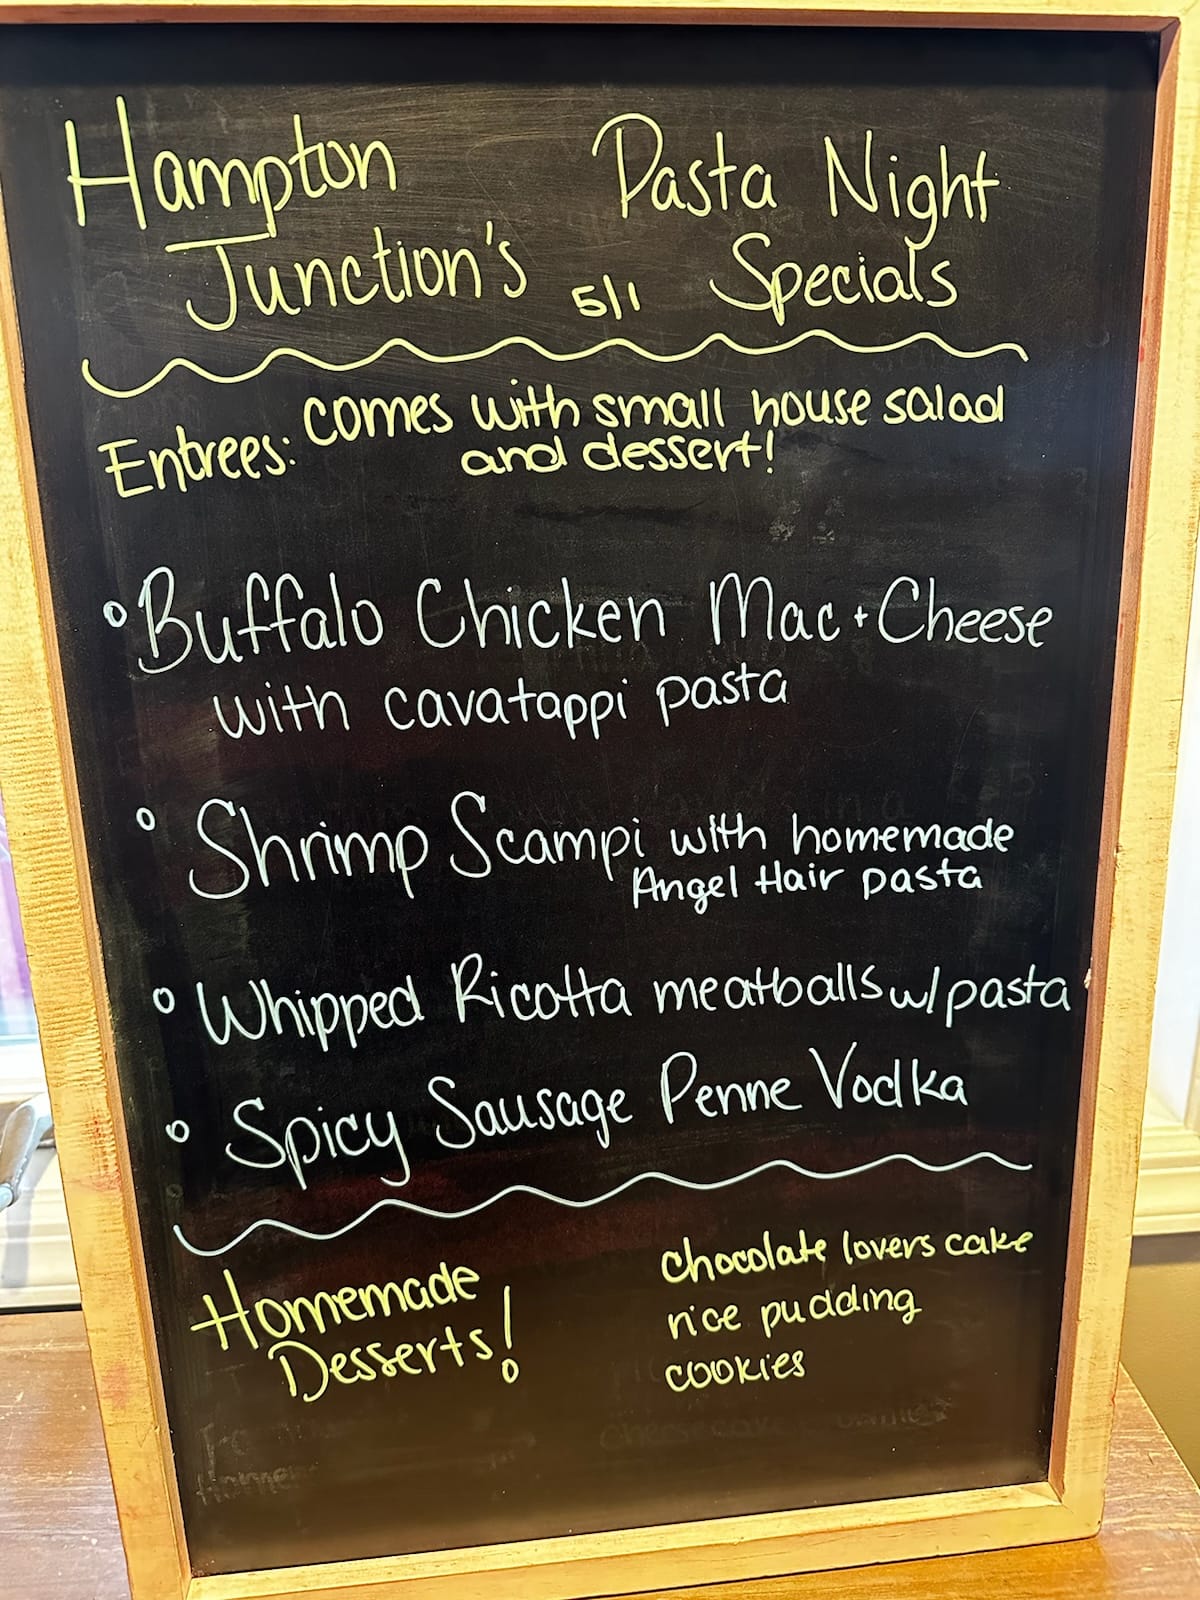 Hampton
Junction's
Pasta Night
5/1 Specials
Entrees: comes with small house salad
and dessert!
Buffalo Chicken Mac + Cheese
with cavatappi pasta
Shrimp Scampi with homemade
Angel Hair pasta
Whipped Ricotta meatballs w/pasta
Spicy Sausage Penne Vodka
Homemade
Desserts!
chocolate lovers cake
rice pudding
cookies